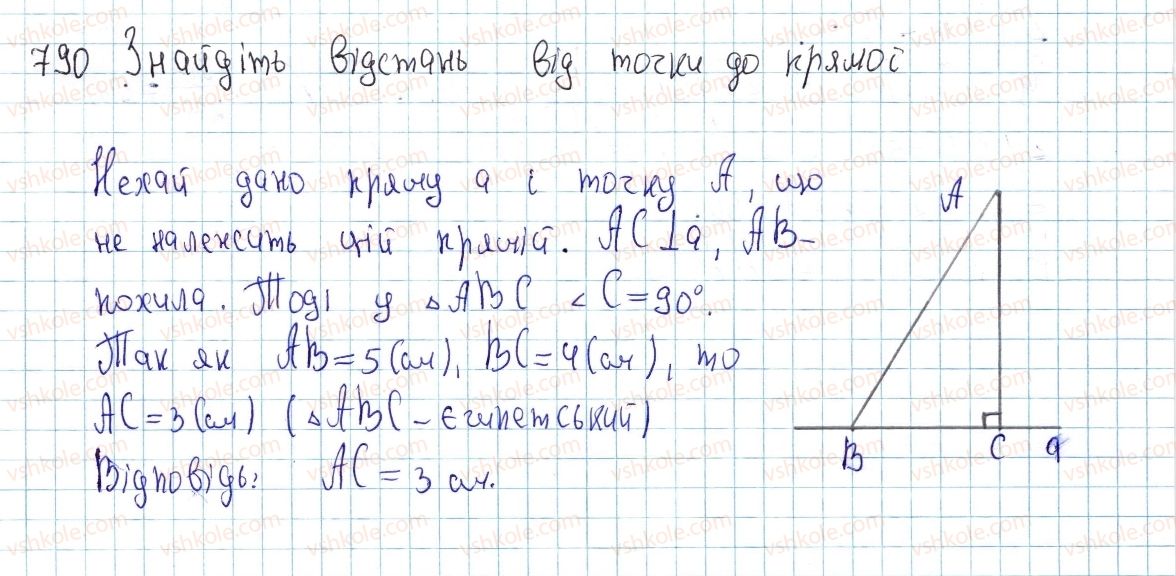 790 Знайдіть відстань від точки до прямої
Нехай дано пряму a і точку A, що
не належить цій прямій. AC⊥a, AB–
похила. Тоді у △ABC ∠C=90°.
Так як AB=5(см), BC=4(см), то
AC=3(см) (△ABC – єгипетський)
Відповідь: AC = 3 см.
A
B C a
vshkole.com